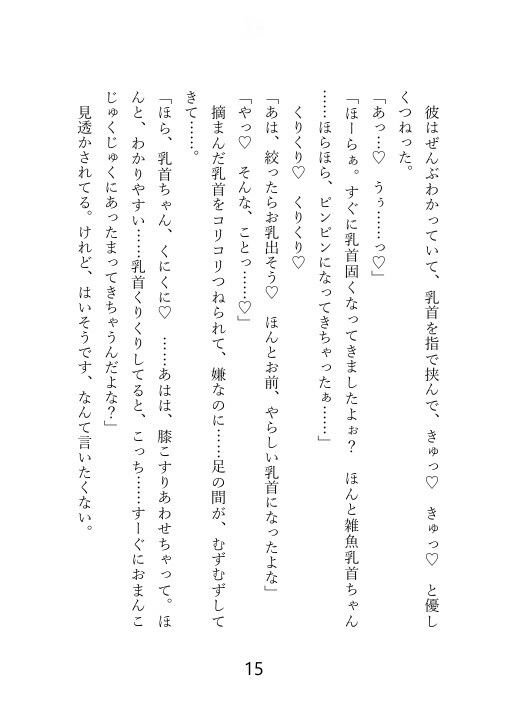 彼はぜんぶわかっていて、乳首を指で挟んで、きゅっ♡　きゅっ♡　と優し
くつねった。
「あっ…♡　うぅ……っ♡」
「ほーらぁ。すぐに乳首固くなってきましたよぉ？　ほんと雑魚乳首ちゃん
……ほらほら、ビンビンになってきちゃったぁ……」
くりくり♡　くりくり♡
「あは、絞ったらお乳出そう♡　ほんとお前、やらしい乳首になったよな」
「やっ♡　そんな、ことっ……♡」
摘まんだ乳首をコリコリつねられて、嫌なのに……足の間が、むずむずして
きて……。
「ほら、乳首ちゃん、くにくに♡　……あはは、膝こすりあわせちゃって。ほ
んと、わかりやすい……乳首くりくりしてると、こっち……すーぐにおまんこ
じゅくじゅくにあったまってきちゃうんだよな？」
見透かされてる。けれど、はいそうです、なんて言いたくない。
15